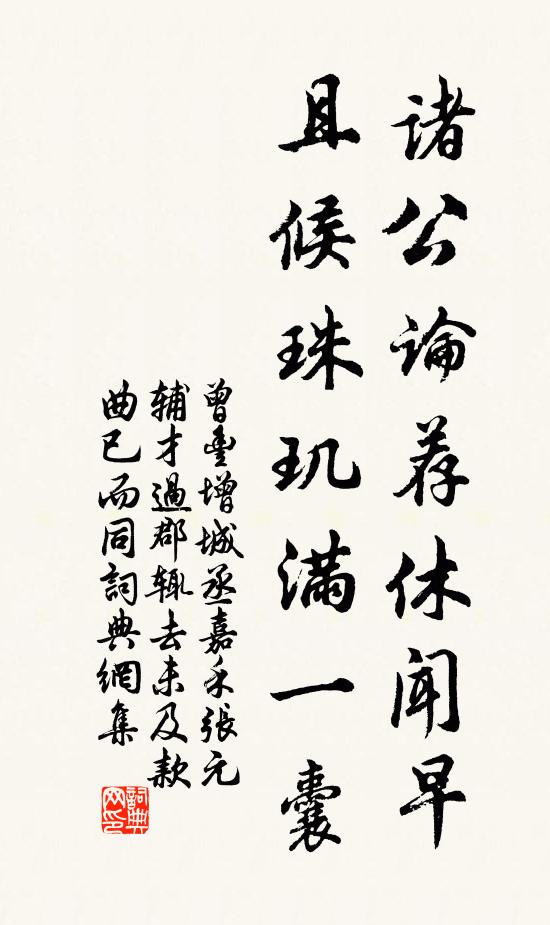 诸公论荐休闻早
且候珠玑满一囊
曾豊增城丞嘉禾張元
辅才過郡辄去未及款
曲已而同詞典網集
詞典网印